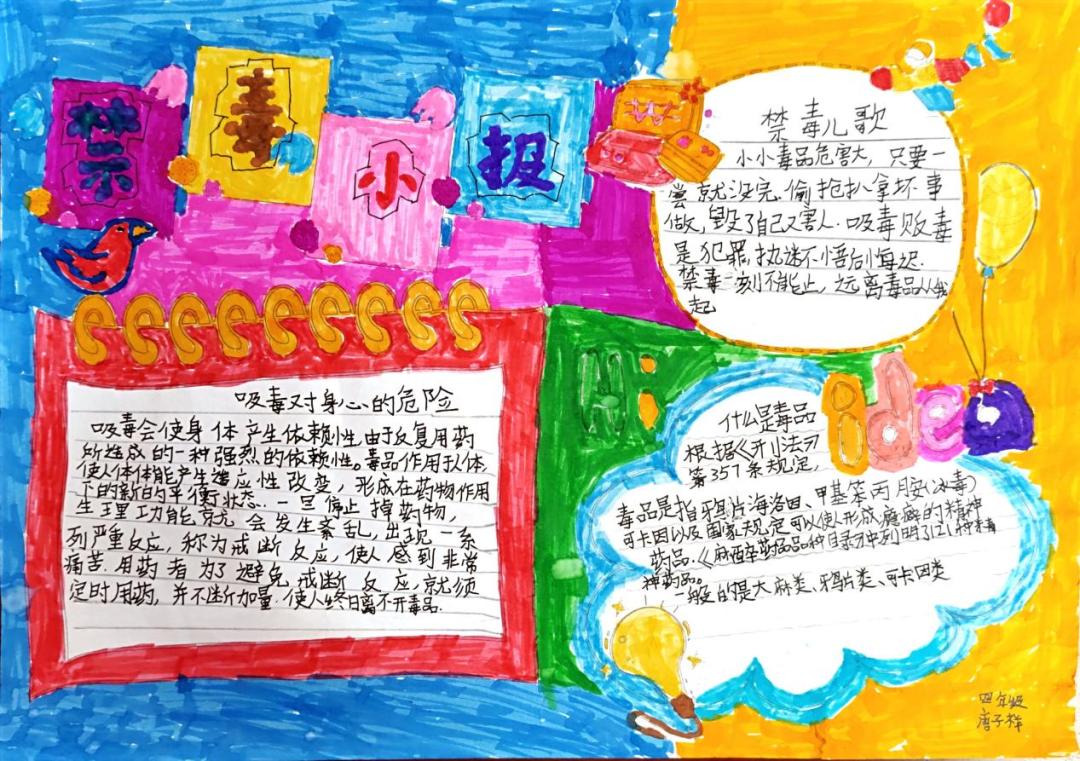 禁毒小报
禁毒儿歌
小小毒品危害大,只要一
尝就没完.偷抢扒拿坏事
做,毁了自己又害人.吸毒贩毒
是犯罪,执迷不悟后悔迟.
禁毒一刻不能止,远离毒品从我
起
吸毒对身心的危险
吸毒会使身体产生依赖性由于反复用药
所造成的一种强烈的依赖性。毒品作用于人体,
使人体体能产生适应性改变,形成在药物作用
下的新的平衡状态.一旦停止掉药物,
生理功能就会发生紊乱,出现一系
列严重反应,称为戒断反应,使人感到非常
痛苦.用药者为了避免戒断反应,就须
定时用药,并不断加量.使人终日离不开毒品.
Hi
idea
什么是毒品
根据《刑法》
第357条规定,
毒品是指鸦片海洛因、甲基苯丙胺(冰毒)
可卡因以及国家规定可以使人形成瘾癖的精神
药品.《麻醉药品品种目录》中列明了121种
神药品。
一般的是大麻类、鸦片类、可卡因类
四年级
唐子祥